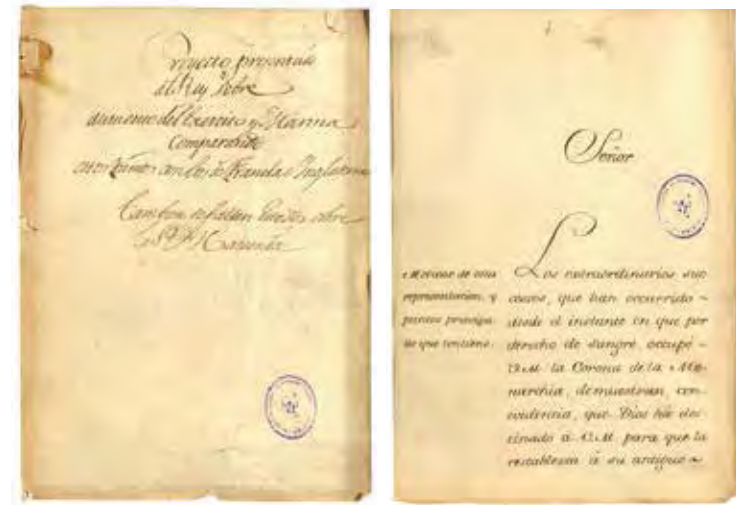 Proyecto presentado
al Rey sobre
aumento del Exercito y Marina
Comparando
con los de Francia e Inglaterra
tambien se hallan
Señor
Motivos de esta
representacion, y
puntos principa-
les que contiene.
Los extraordinarios suc-
cesos, que han occurrido
desde el instante en que por
derecho de sangre, occupó
V.M. la Corona de la Mo-
narchia, demuestran, con
evidencia, que Dios ha des-
tinado á V.M. para que la
restablezca á su antiguo